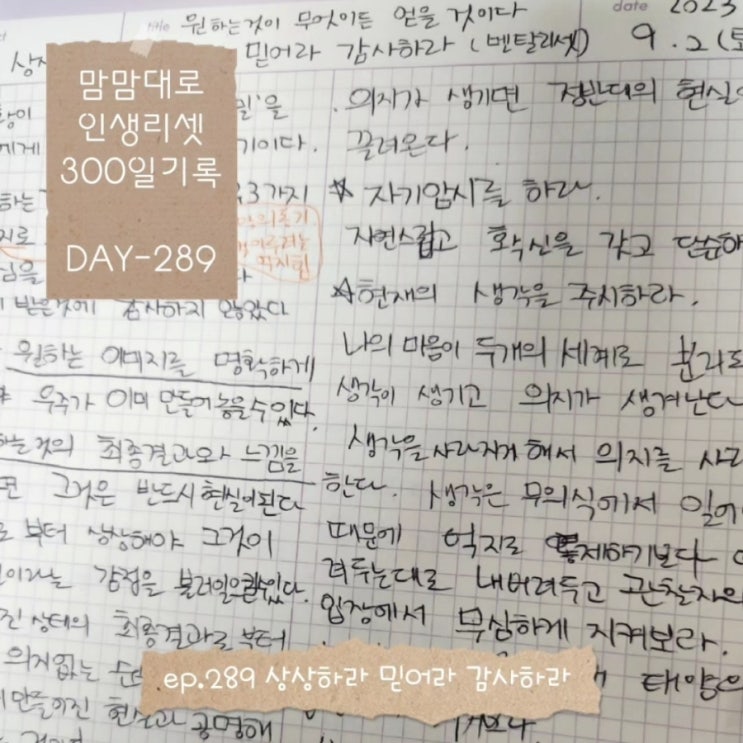 title 원하는것이 무엇이든 얻을 것이다
date 2023
믿어라 감사하라 (멘탈리셋) 9.2(토
맘맘대로
인생리셋
300일기록
DAY-289
기이다.
3가지
받은것에 감사하지 않았다
원하는 이미지를 명확하게
우주가 이미 만들어 놓을수있다.
하는것의 최종결과와 느낌을
그것은 반드시 현실이된다
부터 상상해야 그것이
이라는 감정을 불러일으킬수있다.
진 상태의 최종결과로부터
의지없는
만들어진 현실과 공명해
의지가 생기면 정반대의 현실이
끌려온다.
☆ 자기암시를 하라.
자연스럽고 확신을 갖고 단순하
☆현재의 생각을 주시하라.
나의 마음이 두개의 세계로 분리되
생각이 생기고 의지가 생겨난다
생각을 사라지게 해서 의지를 사라
한다. 생각은 무의식에서 일어
때문에 억지로 제하기보다
겨두는대로 내버려두고 관찰자의
입장에서 무심하게 지켜보라.
태양으
ep.289 상상하라 믿어라 감사하라